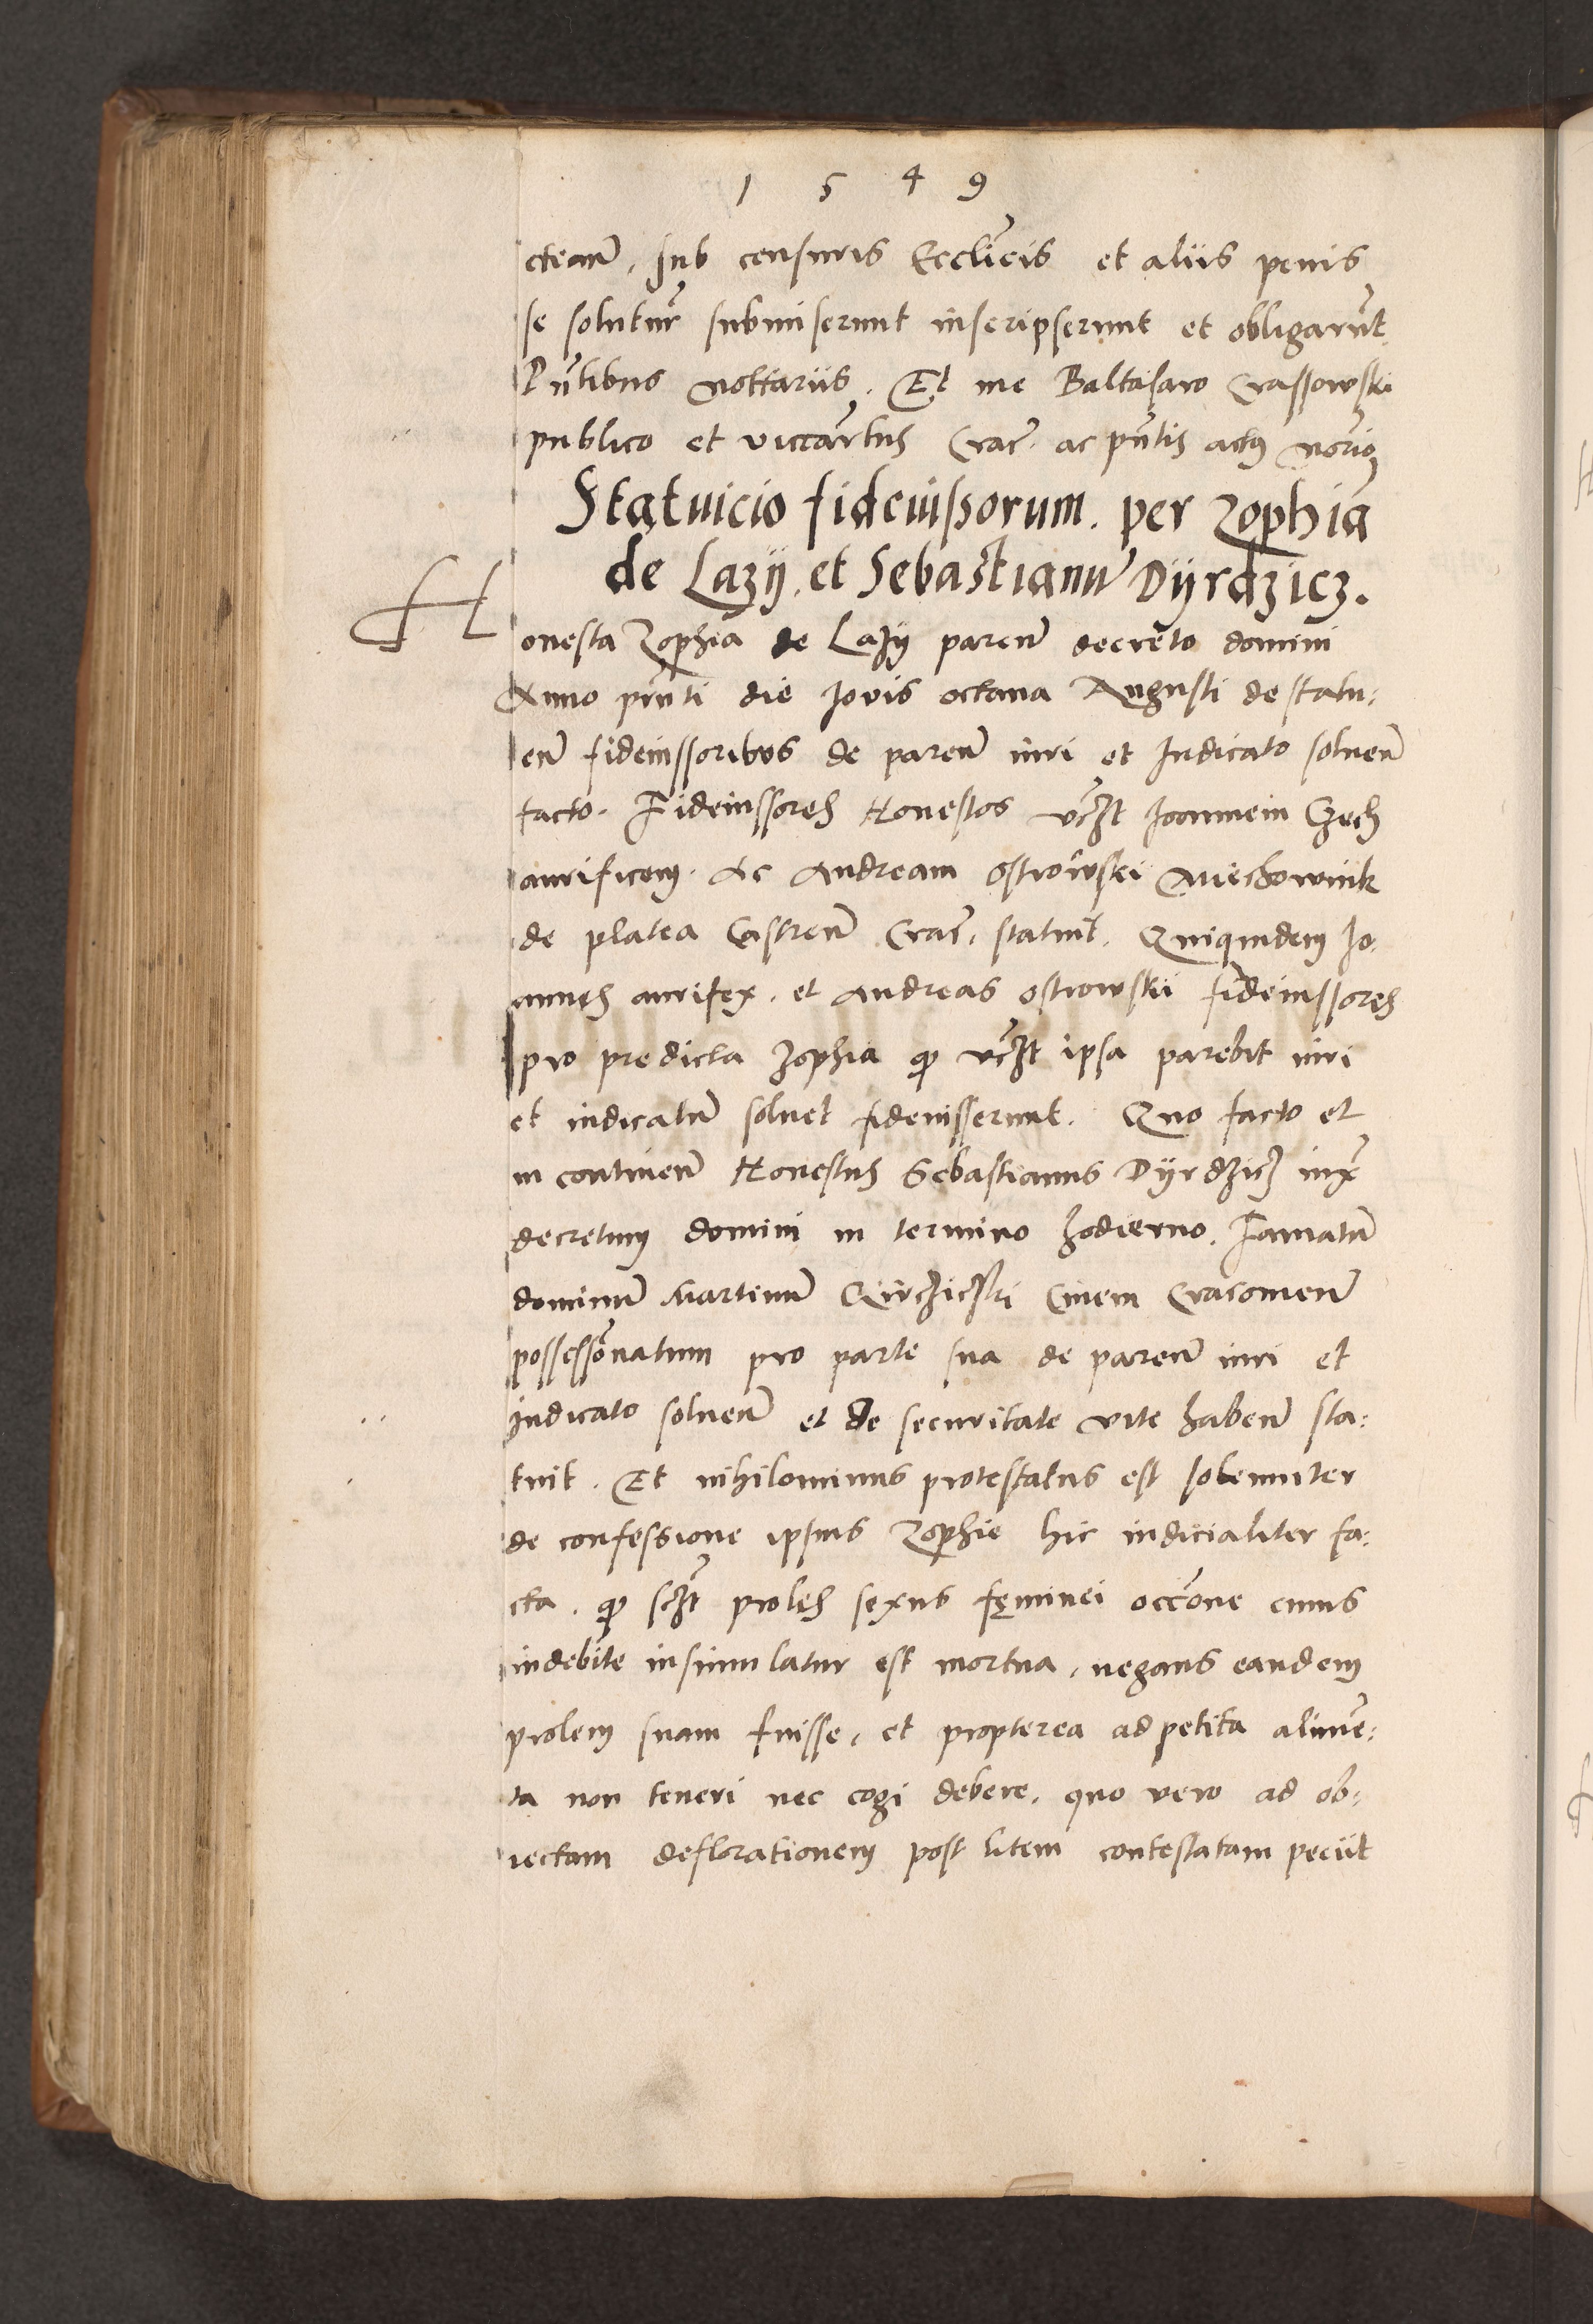 1 5 4 9
cteanȓ, sub censuris Eccl̃icis et aliis penis
se solutur̃ submiserunt inscripserunt et obligarũt
Pñtibus nottariis. Et me Baltasaro Crassowski
publico et viccãrtus Crac̃. ac pñtis actus nõrio
Statuicio fideiussorum. per Zophiã
de Lazÿ. et Sebastianũ Dÿrdzicz.
Honesta Zophia de Lazÿ parenð decreto domini
Anno prñti die Jovis octava Augusti de statu:
enð fideiussoribus de parenð iuri et Iudicato solvenð
facto. Fideiussores Honestos vcz̃t Joannem Czech
aurificem. Ac Andream Ostrowski Miechownik
de platea Castrenð Crac̃. statuit. Quiquidem Jo:
annes aurifex. et Andreas Ostrowskii fideiussores
pro predicta Zophia qȝ vcz̃t ipsa parebit iuri
et iudicatũ solvet fideiusserunt. Quo facto et
in continenð Honestus Sebastianus Dÿrdzicz iux̃
decretum domini in termino hodierno. Famatũ
dominũ Martinũ Qwcziczski Civem Cracovienð
possessõnatum pro parte sua de parenð iuri et
Iudicato solvenð et de securitate vite habenð sta:
tuit. Et nihilominus protestatus est solenniter
de confessione ipsius Zophie hic iudicialiter fa:
cta. qȝ scz̃t proles sexus fęminei occ̃one cuius
indebite insimulatur est mortua, negans eandem
prolem suam fuisse, et propterea ad petita alimẽ:
ta non teneri nec cogi debere. quo vero ad ob:
iectam deflorationem post litem contestatam peciit